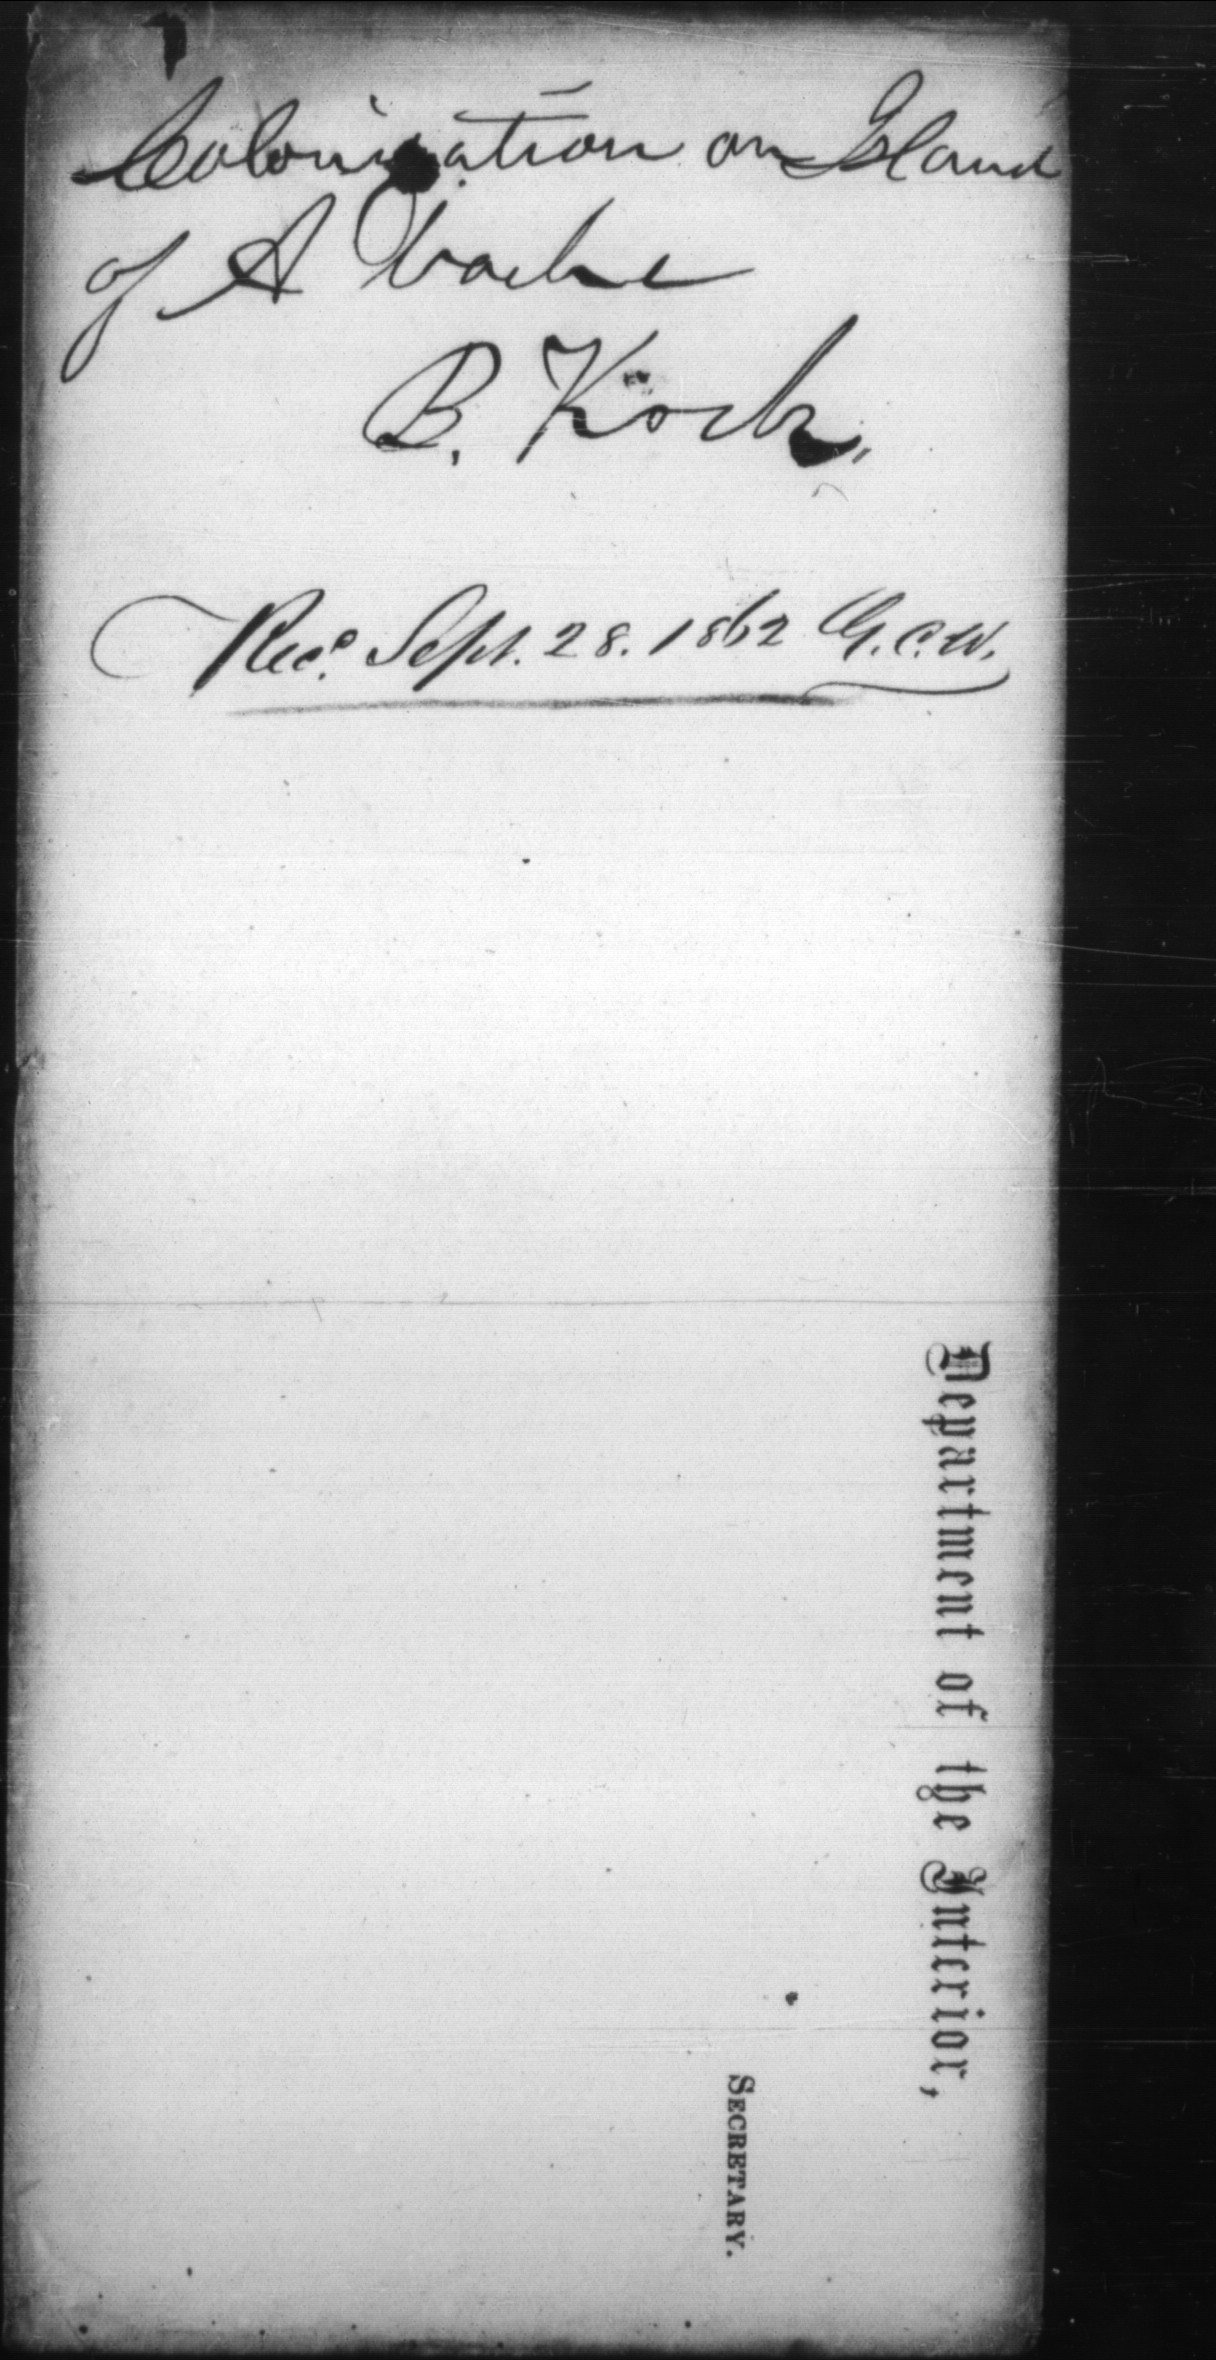 Colonization on Island
of A Vache
B. Kock.
Recd. Sept. 28. 1862 G.C.W.
Department of the Interior,
SECRETARY.